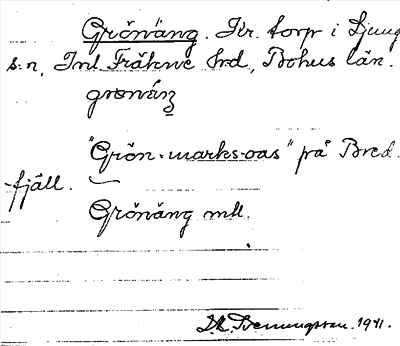 Grönäng. Kr. torp i Ljung
s:n, Inl Fräkne Hrd., Bohus län.
"Grön-marks-oas" på Bred-
fjäll.
Grönäng mll.
1941.